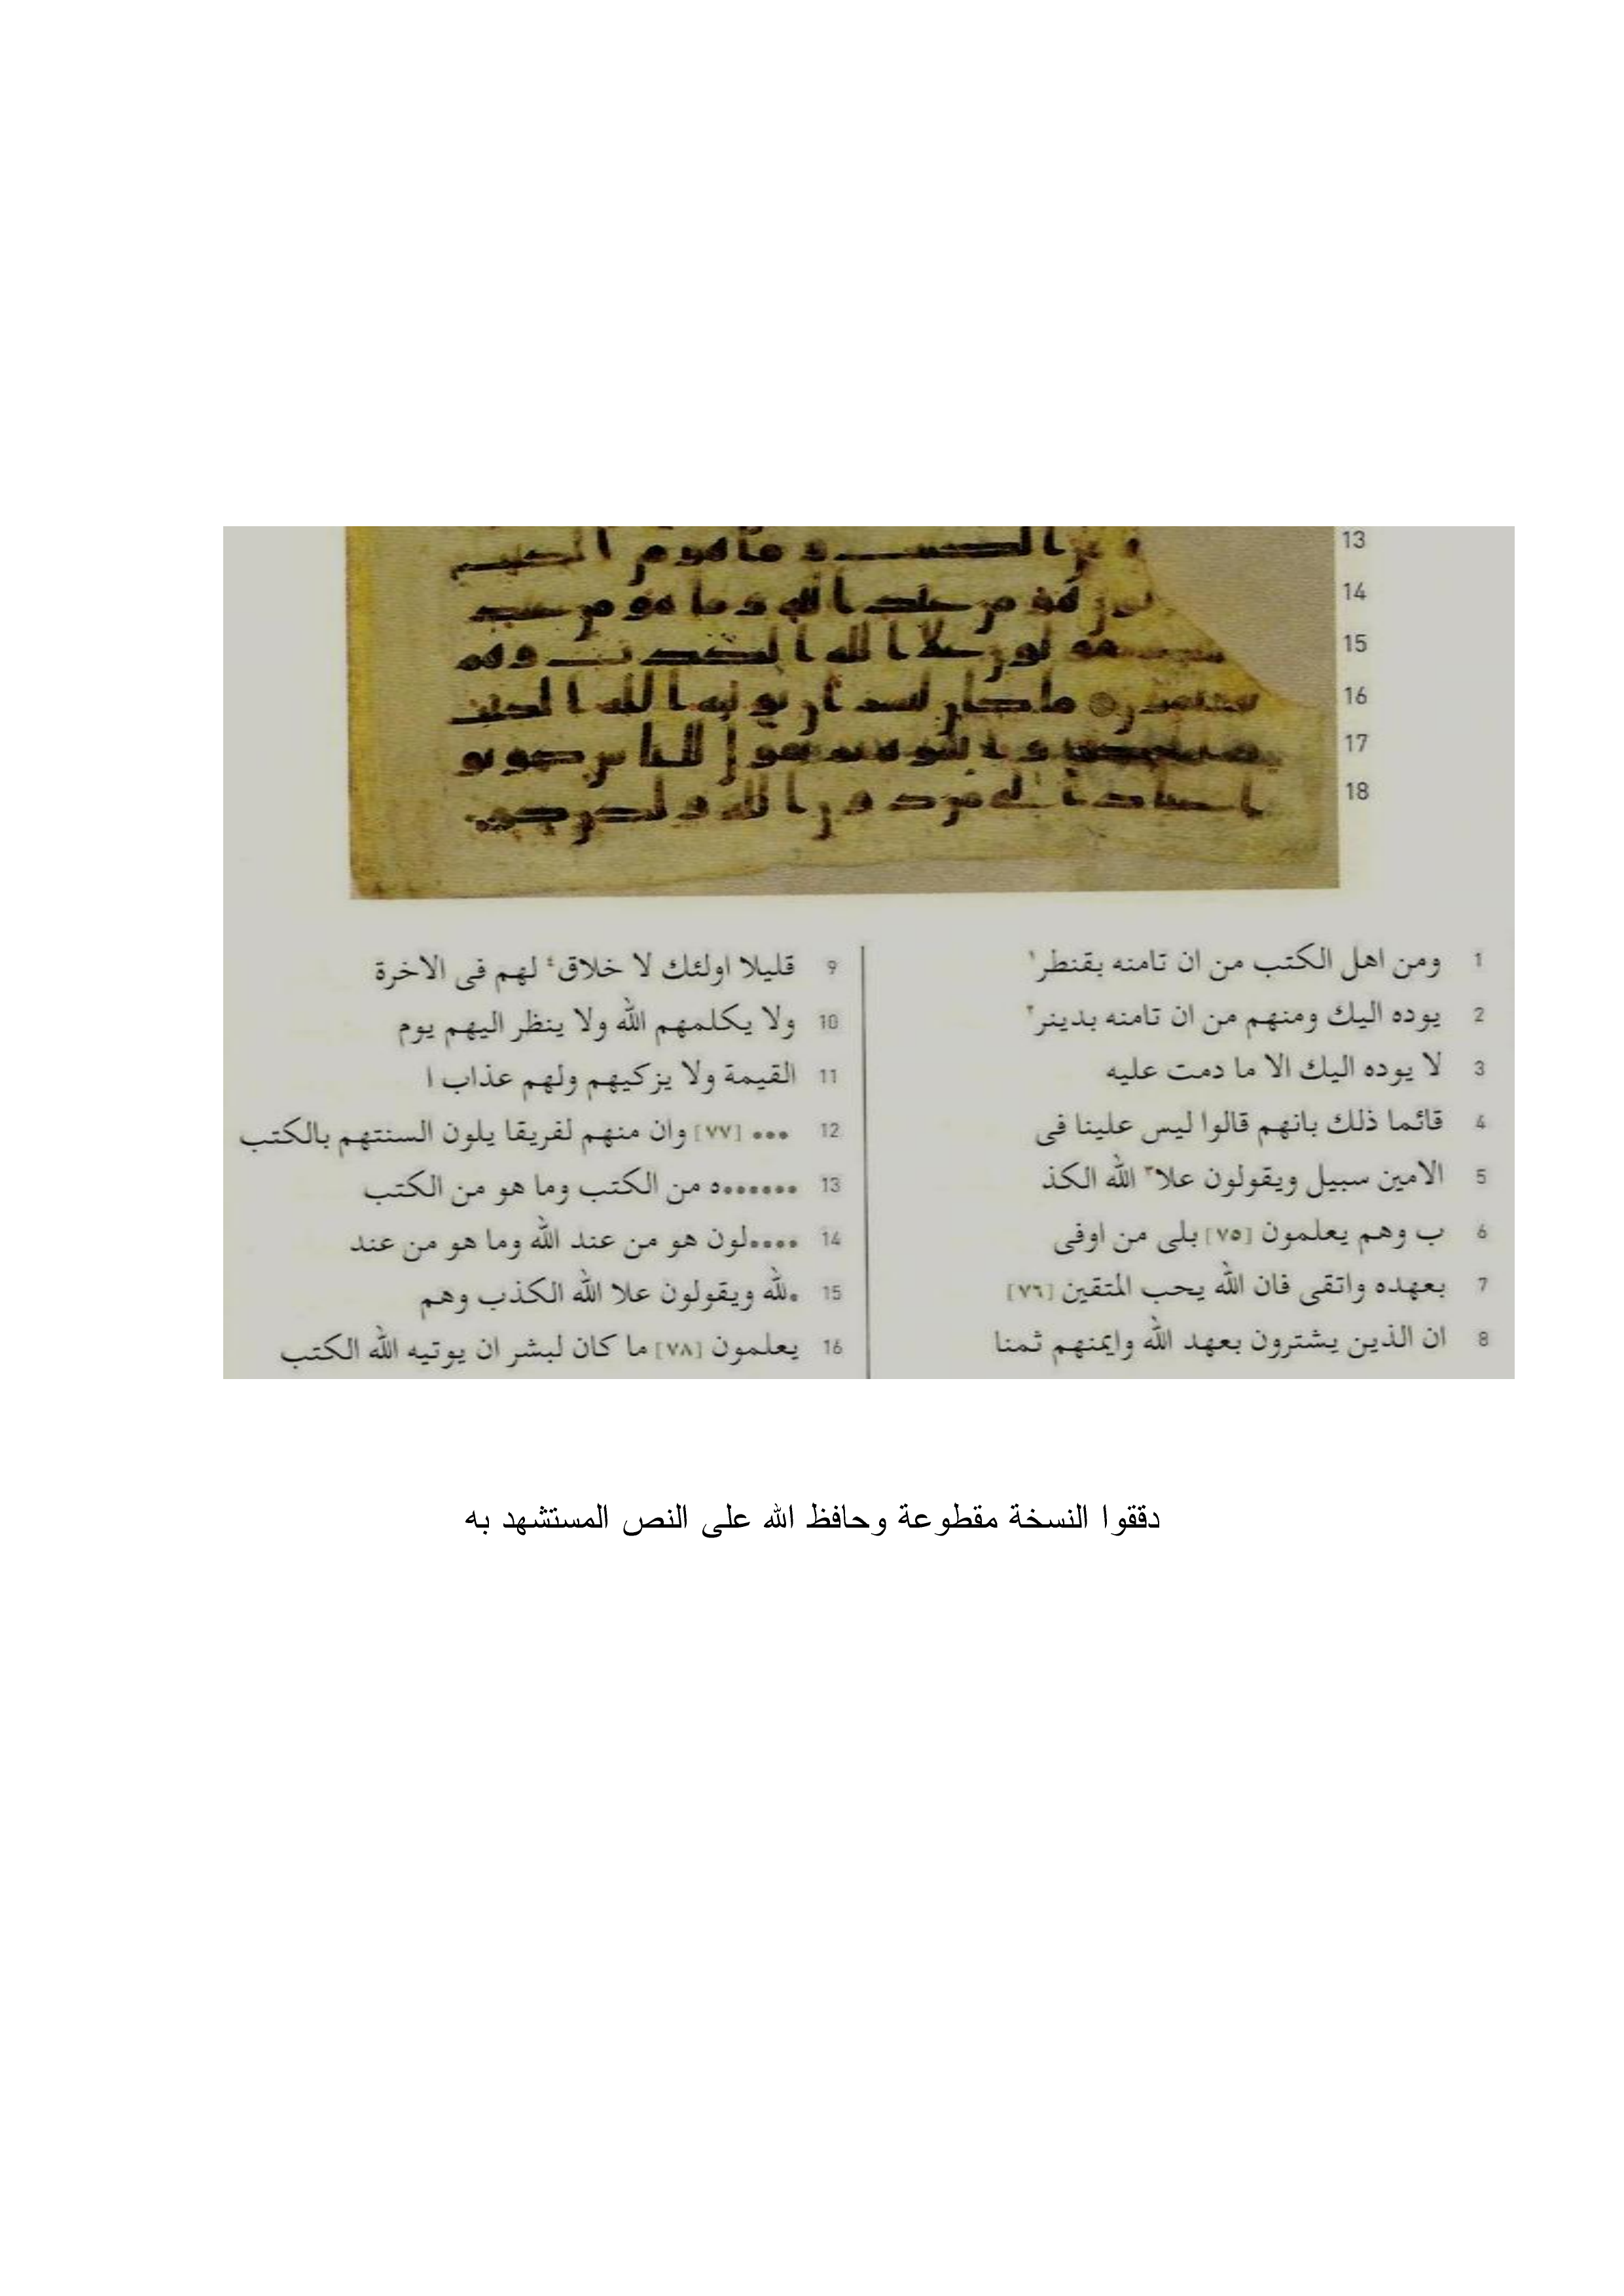 13
14
15
16
17
18
و من الكتب وما هو من الكتب
لون هو من عند الله وما هو من عند
ويقولون علا الله الكذب وهم
يعلمون ما كان لبشر ان يوتيه الله الكتب
1 ومن اهل الكتب من ان تامنه بقنطر١
2 يوده اليك ومنهم من ان تامنه بدينر٢
3 لا يوده اليك الا ما دمت عليه
4 قائما ذلك بانهم قالوا ليس علينا فى
5 الامين سبيل ويقولون علا٣ الله الكذ
6 ب وهم يعلمون [٧٥] بلى من اوفى
7 بعهده واتقى فان الله يحب المتقين [٧٦]
8 ان الذين يشترون بعهد الله وايمنهم ثمنا
9 قليلا اولئك لا خلاق٤ لهم فى الاخرة
10 ولا يكلمهم الله ولا ينظر اليهم يوم
11 القيمة ولا يزكيهم ولهم عذاب ا
12 ••• [٧٧] وان منهم لفريقا يلون السنتهم بالكتب
13 •••••••ه من الكتب وما هو من الكتب
14 ••••لون هو من عند الله وما هو من عند
15 •لله ويقولون علا الله الكذب وهم
16 يعلمون [٧٨] ما كان لبشر ان يوتيه الله الكتب
دققوا النسخة مقطوعة وحافظ الله على النص المستشهد به